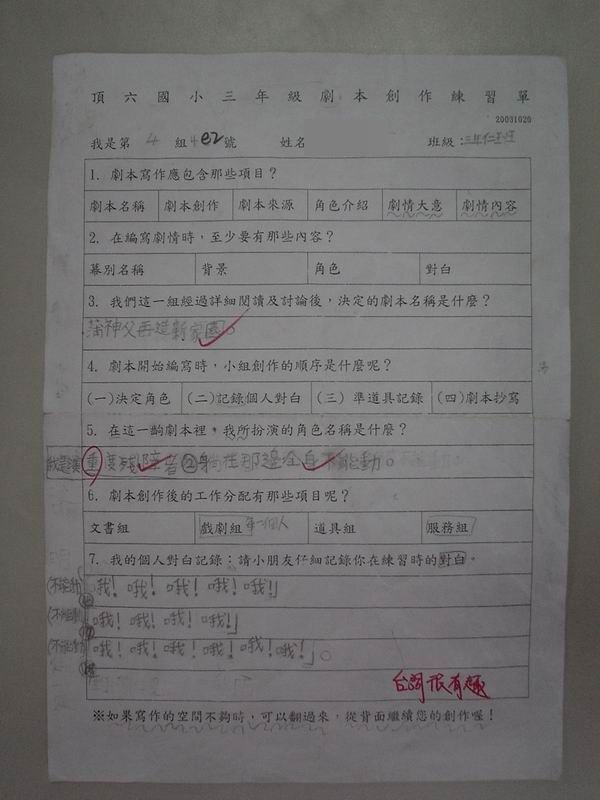 頂六國小三年級劇本創作練習單
20031020
我是第 4 組 4 02 號 姓名 班級：三年仁班
1. 劇本寫作應包含那些項目？
劇本名稱 劇本創作 劇本來源 角色介紹 劇情大意 劇情內容
2. 在編寫劇情時，至少要有那些內容？
幕別名稱 背景 角色 對白
3. 我們這一組經過詳細閱讀及討論後，決定的劇本名稱是什麼？
蒲神父再造新家園。
4. 劇本開始編寫時，小組創作的順序是什麼呢？
(一)決定角色 (二)記錄個人對白 (三) 準道具記錄 (四)劇本抄寫
5. 在這一齣劇本裡，我所扮演的角色名稱是什麼？
我是演 重度殘障者②躺在那邊全身不能動。
6. 劇本創作後的工作分配有那些項目呢？
文書組 戲劇組 第二個人 道具組 服務組
7. 我的個人對白記錄：請小朋友仔細記錄你在練習時的對白。
(不能動) 哦！哦！哦！哦！哦！」
(不能動) 哦！哦！哦！哦！」
(不能動) 哦！哦！哦！哦！哦！哦！」。
台詞很有趣
※如果寫作的空間不夠時，可以翻過來，從背面繼續您的創作喔！